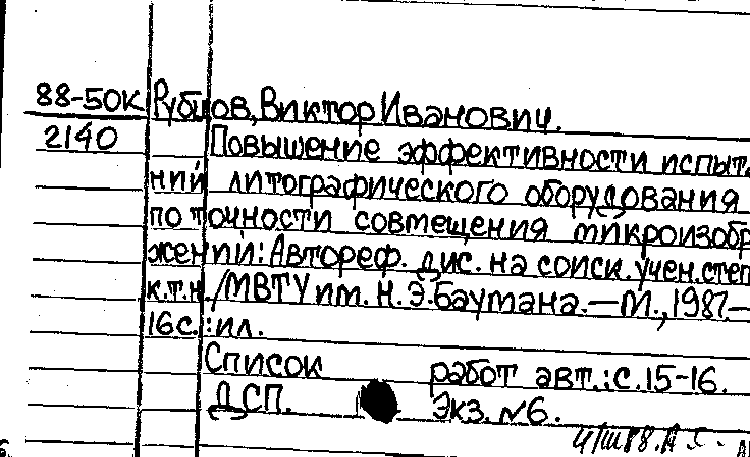 88-50К Рубцов, Виктор Иванович.
2140 Повышение эффективности испыта
ний литографического оборудования
по точности совмещения микроизобр
жений: Автореф. дис. на соиск. учен. степ
к.т.н. /МВТУ им. Н.Э.Баумана.—М., 1987—
16с.:ил.
Список работ авт.: с.15-16.
ДСП. Экз. №6.